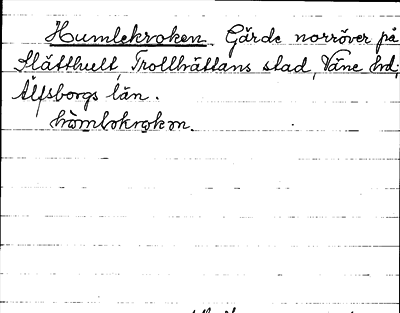 Humlekroken. Gärde norröver på
Slätthult, Trollhättans stad, Väne hd,
Älfsborgs län.
hòmlokrokon.